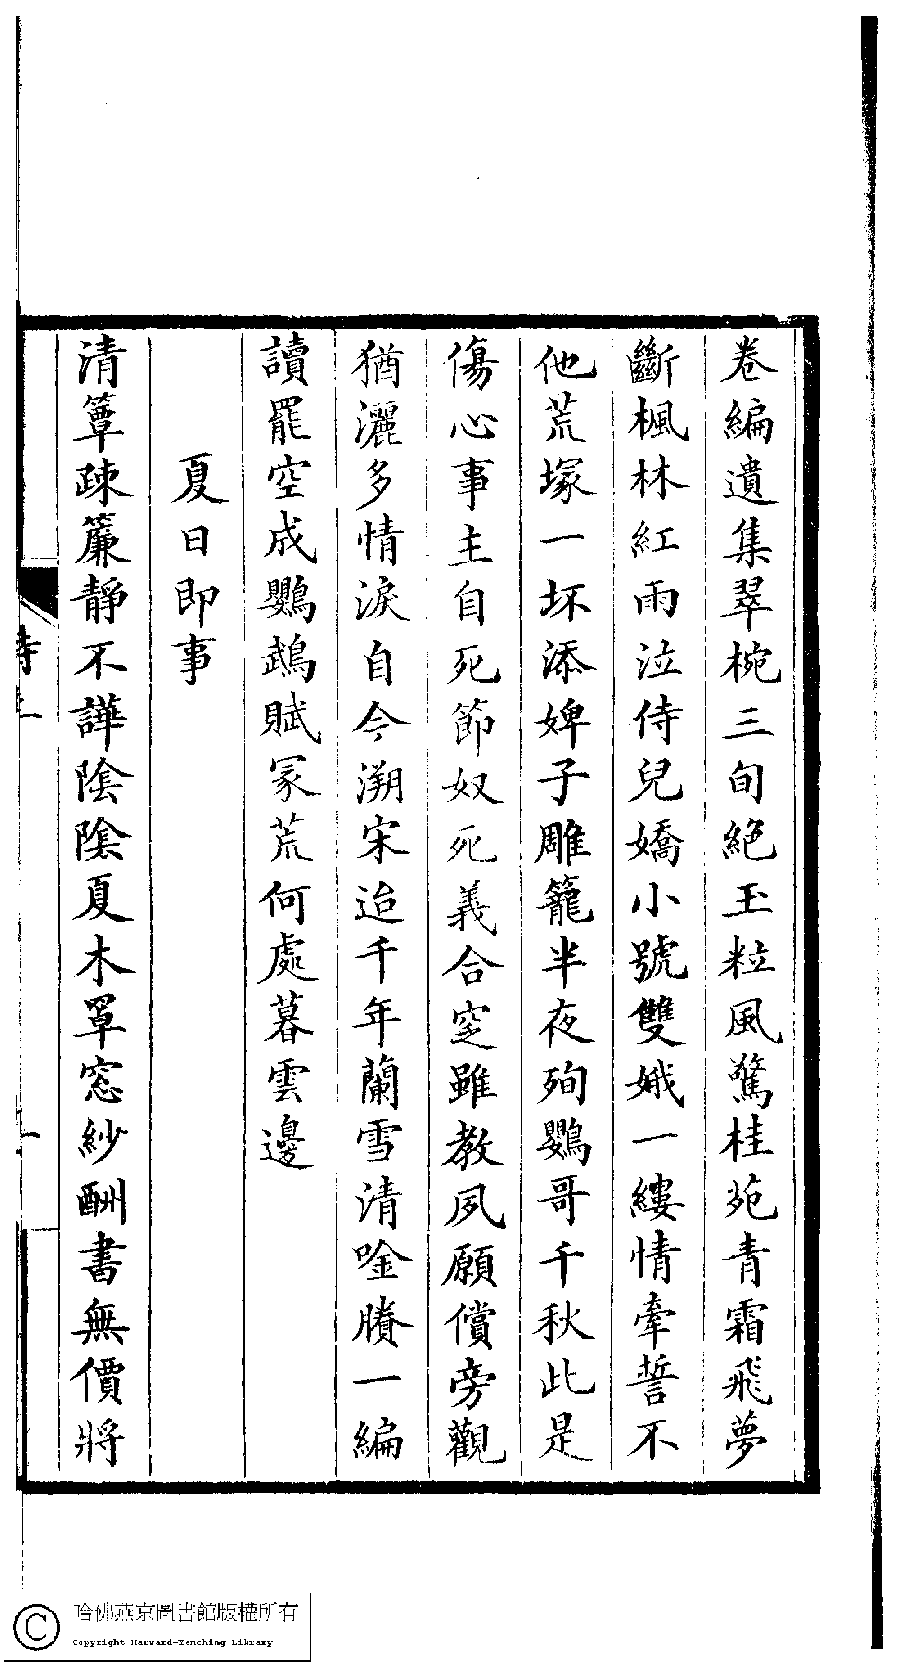 卷編遺集翠椀三旬絕玉粒風驚桂苑青霜飛夢
斷楓林紅雨泣侍兒嬌小號雙娥一縷情牽誓不
他荒塚一坏添婢子雕籠半夜殉鸚哥千秋此是
傷心事主自死節奴死義合窆雖教夙願償旁觀
猶灑多情淚自今溯宋迨千年蘭雪清唫賸一編
讀罷空成鸚鵡賦冢荒何處暮雲邊
夏日即事
清簟疎簾靜不譁陰陰夏木罩窓紗酬書無價將
哈佛燕京圖書館版權所有
Copyright Harvard-Yenching Library